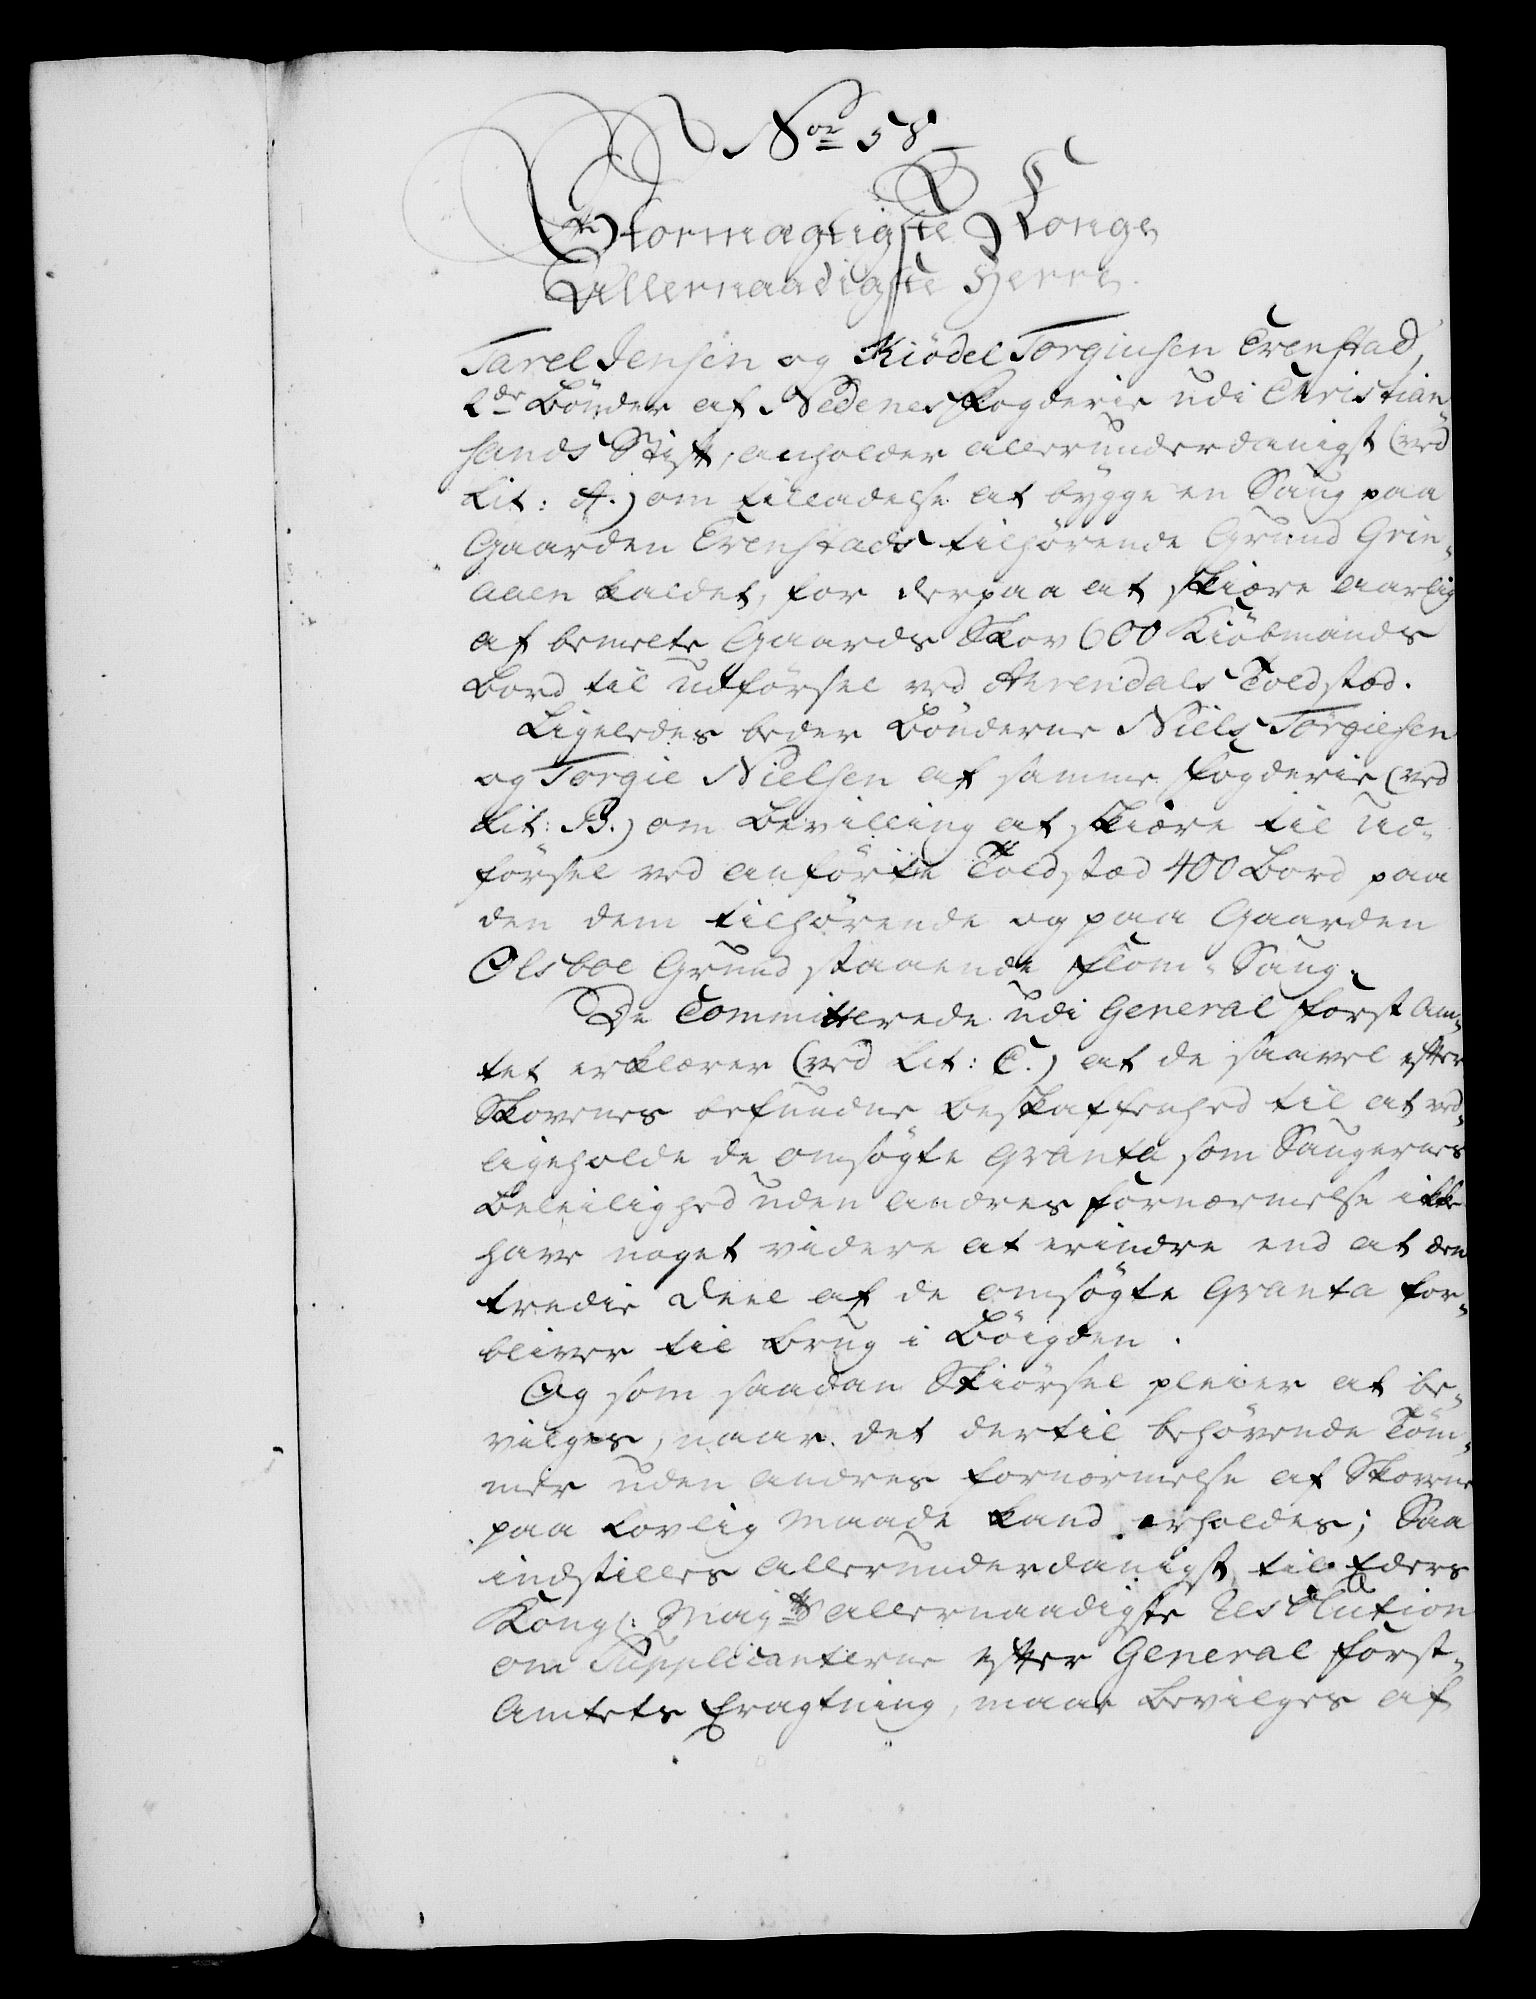 No 58
Stormægtigste Konge
Allernaadigste Herre.
Tarel Jensen og Kiödel Torgiusen Evenstad,
2de Bönder af Nedenes Fogderie udi Christian-
sands Stift, anholder allerunderdanigst (ved
Lit: A.) om tilladelse at bygge en Saug paa
Gaarden Evenstads tilhørende Grund Grin-
aaen kaldet, for derpaa at skiære aarlig
af bemelte Gaards Skov 600 Kiöbmands
Bord til udførsel ved Ahrendals Toldstæd.
Ligeledes beder Bönderne Niels Torgiesen
og Torgie Nielsen af samme Fogderie (ved
Lit: B.) om Bevilling at skiære til ud-
førsel ved anførte Toldstæd 400 Bord paa
den dem tilhørende og paa Gaarden
Olsboe Grund staaende Flom-Saug.
De Committerede udi General Forst Am-
tet erklærer (ved Lit: C.) at de saavel efter
Skovenes befundne beskaffenhed til at ved-
ligeholde de omsøgte qvanta som Saugernes
Beleilighed uden andres fornærmelse ikke
have noget videre at erindre end at den
tredie deel af de omsøgte qvanta for-
bliver til brug i Böigden.
Og som saadan Skiørsel pleier at be-
vilges, naar det dertil behøvende Töm-
mer uden andres fornærmelse af Skovene
paa lovlig maade kand erholdes; Saa
indstilles allerunderdanigst til Eders
Kongl: Mayts allernaadigste Resolution
om Supplicanterne efter General Forst-
Amtets Eragtning, maae bevilges af